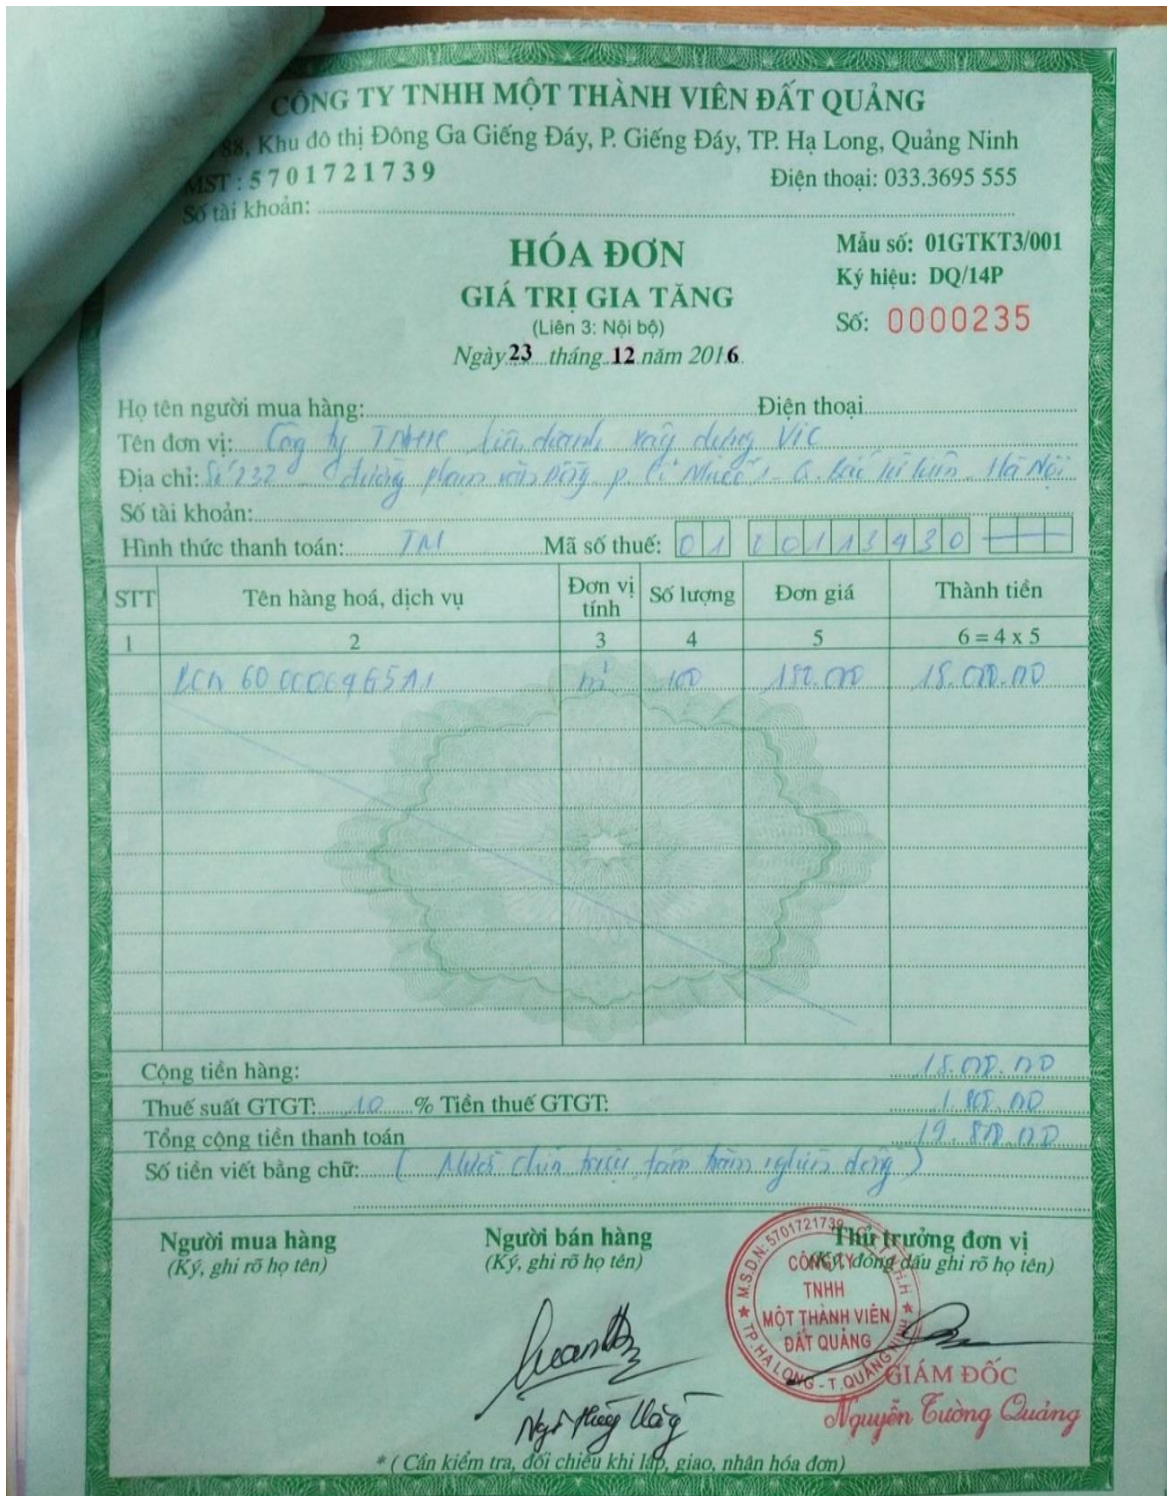 CÔNG TY TNHH MỘT THÀNH VIÊN ĐẤT QUẢNG
88, Khu đô thị Đông Ga Giếng Đáy, P. Giếng Đáy, TP. Hạ Long, Quảng Ninh
MST : 5701721739 Điện thoại: 033.3695 555
Số tài khoản:
HÓA ĐƠN
Mẫu số: 01GTKT3/001
GIÁ TRỊ GIA TĂNG
Ký hiệu: DQ/14P
(Liên 3: Nội bộ)
Số: 0000235
Ngày 23 tháng 12 năm 2016
Họ tên người mua hàng: Điện thoại
Tên đơn vị: Công ty TNHH liên danh xây dựng VIC
Địa chỉ: Số 232 đường Phạm Văn Đồng - P. Cổ Nhuế 1 - Q. Bắc Từ Liêm - Hà Nội
Số tài khoản:
Hình thức thanh toán: TM Mã số thuế: 01
STT Tên hàng hoá, dịch vụ Đơn vị tính Số lượng Đơn giá Thành tiền
1 2 3 4 5 6 = 4 x 5
100 180.000 18.000.000
Cộng tiền hàng: 18.000.000
Thuế suất GTGT: 10 % Tiền thuế GTGT: 1.800.000
Tổng cộng tiền thanh toán 19.800.000
Số tiền viết bằng chữ: ( Mười chín triệu, tám trăm nghìn đồng )
Người mua hàng Người bán hàng Thủ trưởng đơn vị
(Ký, ghi rõ họ tên) (Ký, ghi rõ họ tên) (Ký, đóng dấu ghi rõ họ tên)
M.S.D.N: 5701721739
CÔNG TY
TNHH
MỘT THÀNH VIÊN
ĐẤT QUẢNG
TP. HẠ LONG - T. QUẢNG NINH
GIÁM ĐỐC
Nguyễn Tường Quảng
* ( Cần kiểm tra, đối chiếu khi lập, giao, nhận hóa đơn)